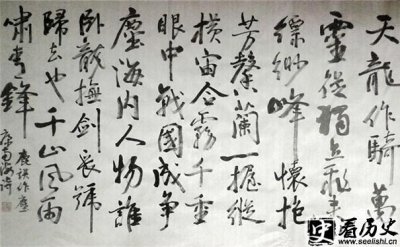 天龍作騎萬
靈從獨立飛来
縹緲峰懷抱
芳馨蘭一握縱
橫宙合霧千重
眼中戰國成爭
塵海内人物誰
卧龍撫劍長號
歸去也千山風雨
嘯青鋒
鹿誤作塵
康南海詩
看历史
www.seelishi.cn